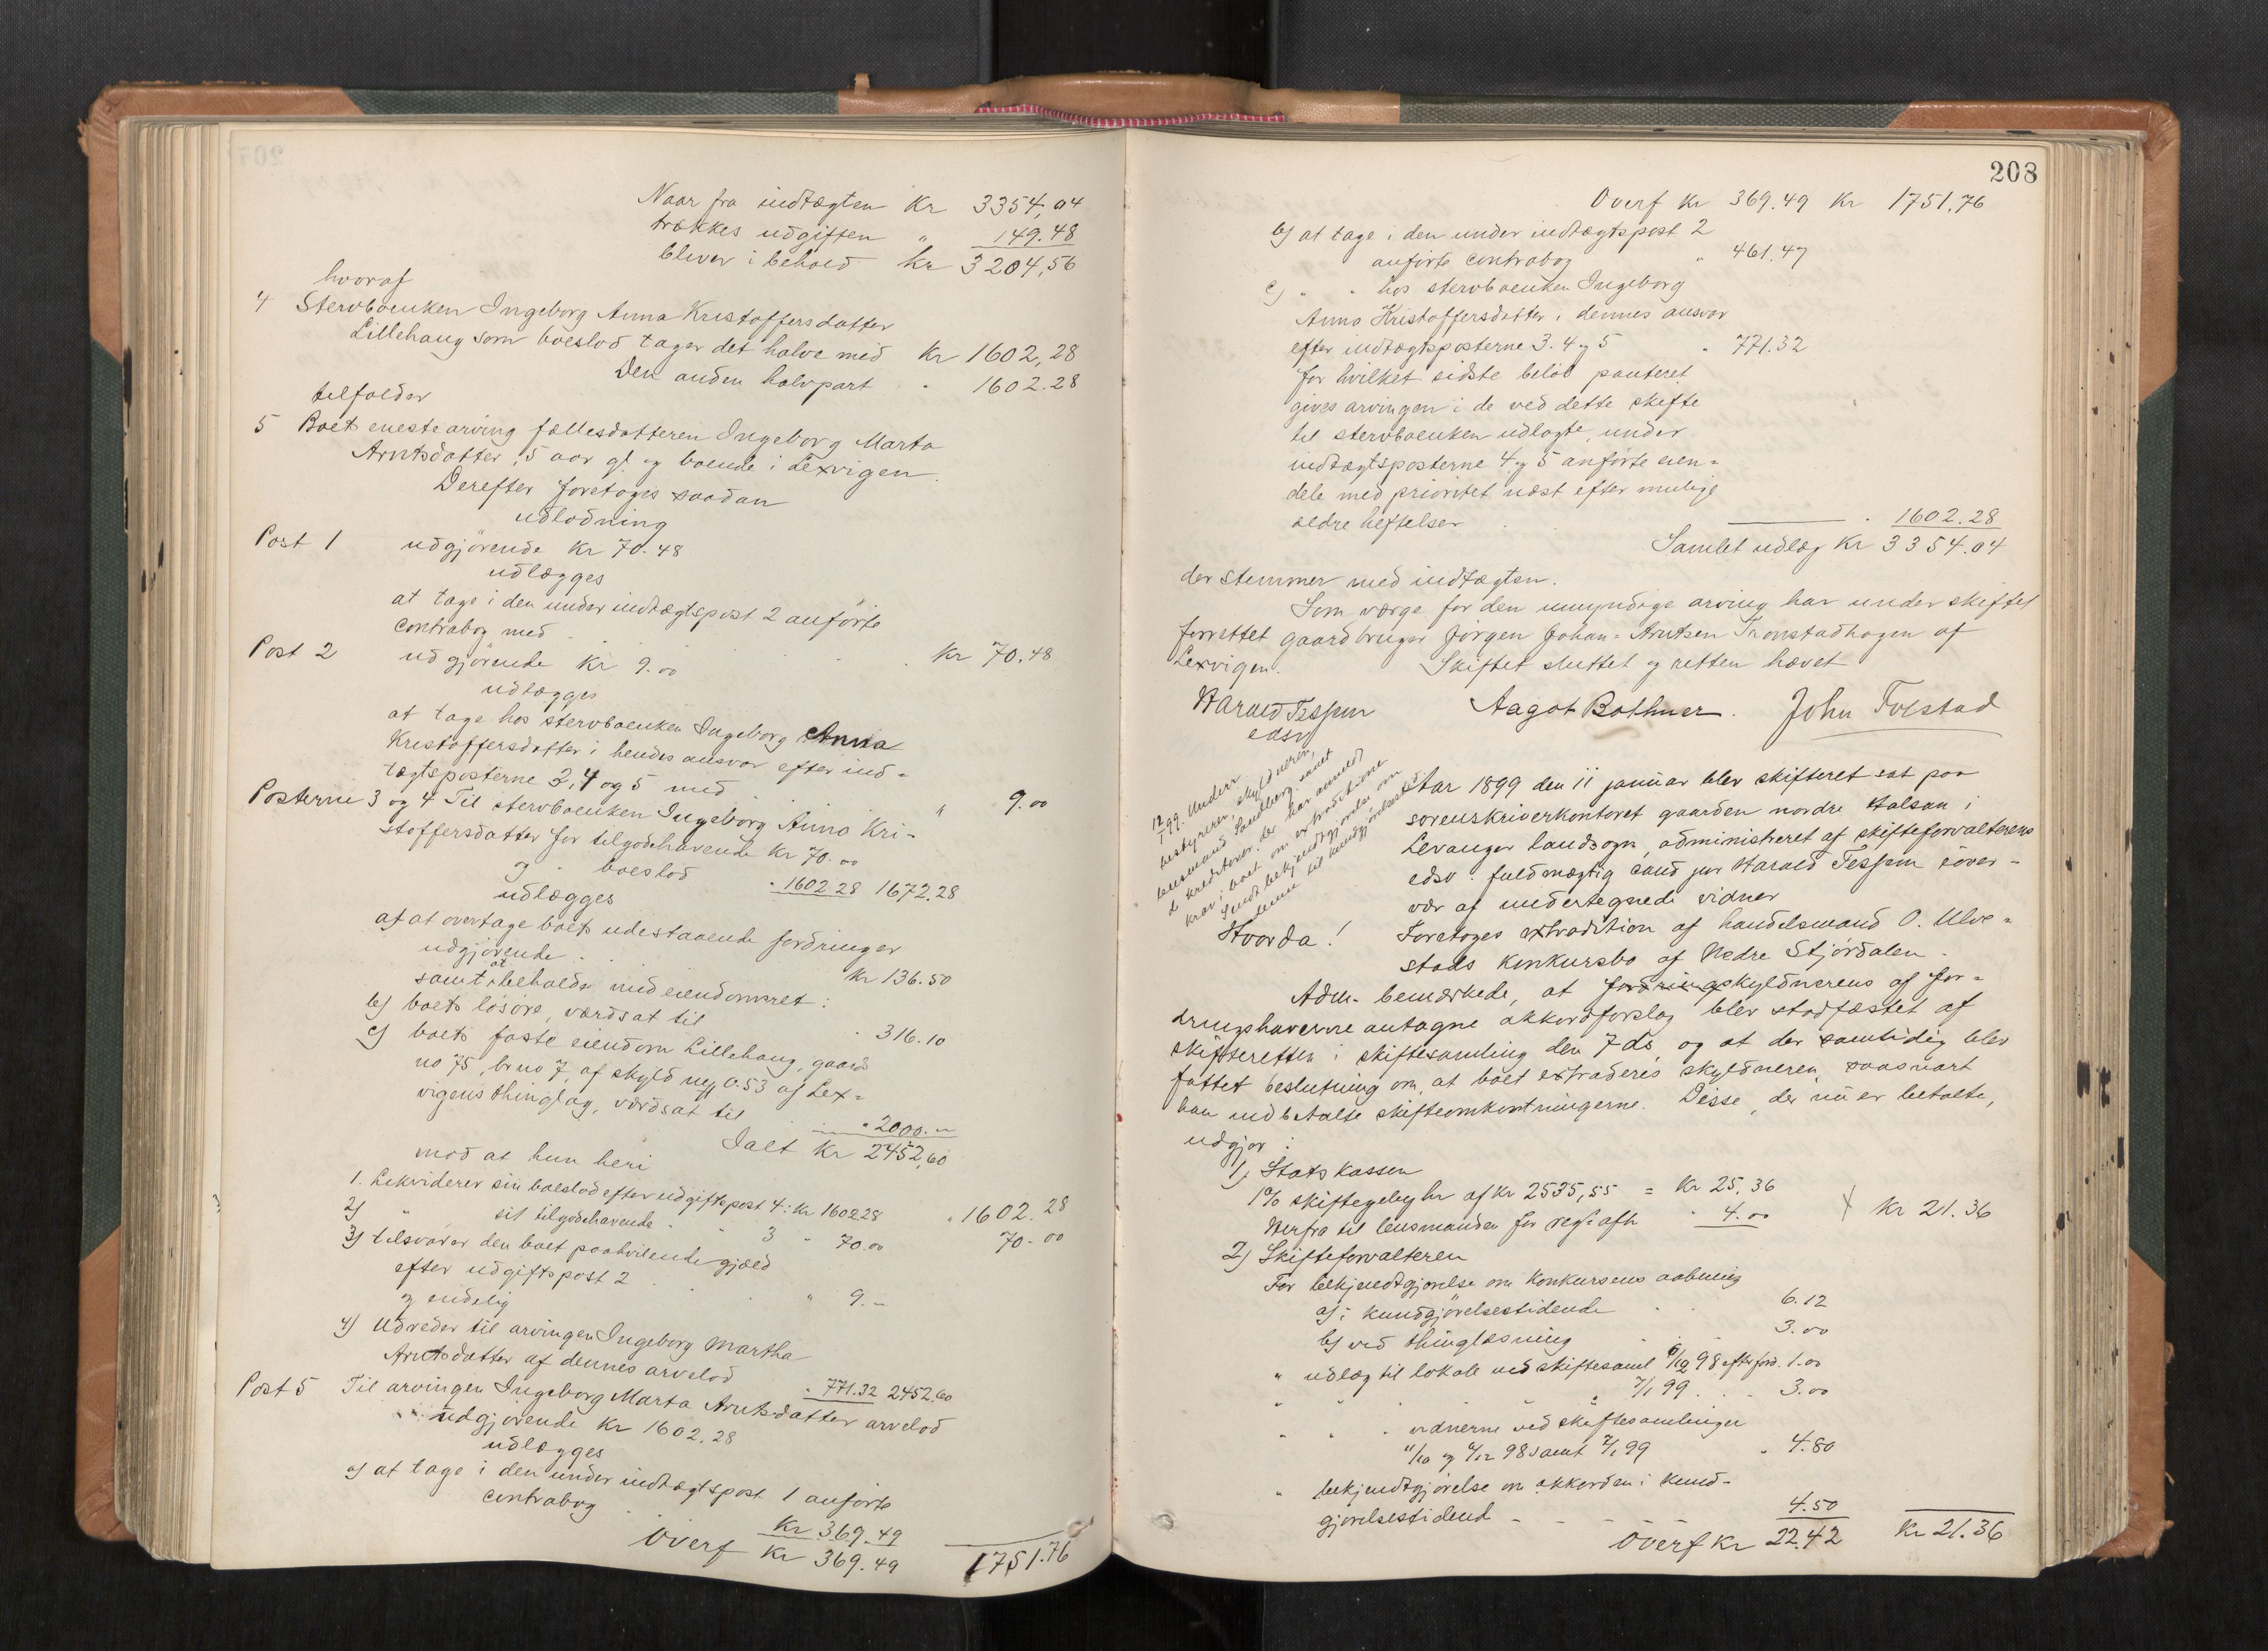 Naar fra indtægten Kr 3354,04
trækkes udgiften " 149.48
bliver i behold Kr 3204,56
hvoraf
4 Stervboenken Ingeborg Anna Kristoffersdatter
Lillehaug som boeslod tager det halve med Kr 1602,28
Den anden halvpart " 1602.28
tilfalder
5 Boets eneste arving fællesdatteren Ingeborg Marta
Arntsdatter, 5 aar gl. og boende i Lexvigen.
Derefter foretoges saadan
udlodning
Post 1 udgjörende Kr 70.48
udlægges
at tage i den under indtægtspost 2 anförte
contrabog med . . . Kr 70.48
Post 2 udgjörende Kr 9.00
udlægges
at tage hos stervboenken Ingeborg Anna
Kristoffersdatter i hendes ansvar efter ind-
tægtsposterne 3, 4 og 5 med . " 9.00
Posterne 3 og 4 Til stervboenken Ingeborg Anna Kri-
stoffersdatter for tilgodehavende Kr 70.00
og " boeslod " 1602.28 1672.28
udlægges
a) at overtage boets udestaaende fordringer
udgjörende . . . Kr 136.50
samt at beholde med eiendomsret:
b) boets lösöre, værdsat til " 316.10
c) boets faste eiendom Lillehaug, gaards
no 75, brno 7, af skyld my 0.53 af Lex-
vigens thinglag, værdsat til " 2000.—
Ialt Kr 2452,60
mod at hun heri
1. Likviderer sin boeslod efter udgiftspost 4: Kr 1602.28 " 1602.28
2) " sit tilgodehavende " " 3 " 70.00 70.00
3) tilsvarer den boet paahvilende gjæld
efter udgiftspost 2 . . " 9.—
og endelig
4) Udreder til arvingen Ingeborg Martha
Arntsdatter af dennes arvelod " 771.32 2452.60
Post 5 Til arvingen Ingeborg Marta Arntsdatter arvelod
udgjörende Kr 1602.28
udlægges
a) at tage i den under indtægtspost 1 anförte
contrabog . Kr 369.49
Överf Kr 369.49 1751.76
208
Overf Kr 369.49 Kr 1751.76
b) at tage i den under indtægtspost 2
anförte contrabog " 461.47
c) " " hos stervboenken Ingeborg
Anna Kristoffersdatter i dennes ansvar
efter indtægtsposterne 3. 4 og 5 " 771.32
for hvilket sidste belöb panteret
gives arvingen i de ved dette skifte
til stervboenken udlagte, under
indtægtsposterne 4 og 5 anförte eien-
dele med prioritet næst efter mulige
ældre heftelser . " 1602.28
Samlet udlæg Kr 3354.04
der stemmer med indtægten.
Som værge for den umyndige arving har under skiftet
forrettet gaardbruger Jörgen Johan Arntsen Tronstadhagen af
Lexvigen. Skiftet sluttet og retten hævet
Harald Tessem Aagot Bothner. John Tolstad
edsv
12/1 99. Underr.
bestyreren, skyldneren,
lensmand Sandberg samt
de kreditorer, der har anmeldt
krav i boet om extraditione
Sendt bekjendtgjörelse om
denne til kundgjörelsestid
Aar 1899 den 11 januar blev skifteret sat paa
sorenskriverkontoret gaarden nordre Halsan i
Levanger landsogn, administreret af skifteforvalterens
edsv. fuldmægtig cand jur Harald Tessem i over-
vær af undertegnede vidner
Hvorda! Foretoges extradition af handelsmand O. Ulve-
stads konkursbo af Nedre Stjördalen.
Adm. bemærkede, at fordring skyldnerens af for-
dringshaverne antagne akkordforslag blev stadfæstet af
skifteretten i skiftesamling den 7 ds, og at der samtidig blev
fattet beslutning om, at boet extraderes skyldneren, saasnart
han indbetalte skifteomkostningerne. Disse, der nu er betalte,
udgjør:
1) Statskassen
1% skiftegebyhr af Kr 2535,55 = Kr 25.36
Herfra til lensmanden for reg. afh " 4.00 Kr 21.36
2) Skifteforvalteren
For bekjendtgjörelse om konkursens aabning
a) i kundgjörelsestidende . . 6.12
b) ved thinglæsning . . . 3.00
" udlæg til lokale ved skiftesaml 6/12 98 efter ford. 1.00
" " " 7/1 99 . . 3.00
" " " vidnerne ved skiftesamlinger
11/10 og 6/12 98 samt 7/1 99 " 4.80
" bekjendtgjörelse om akkorden i kund-
gjörelsestidend - - - 4.50
Överf Kr 22.42 Kr 21.36